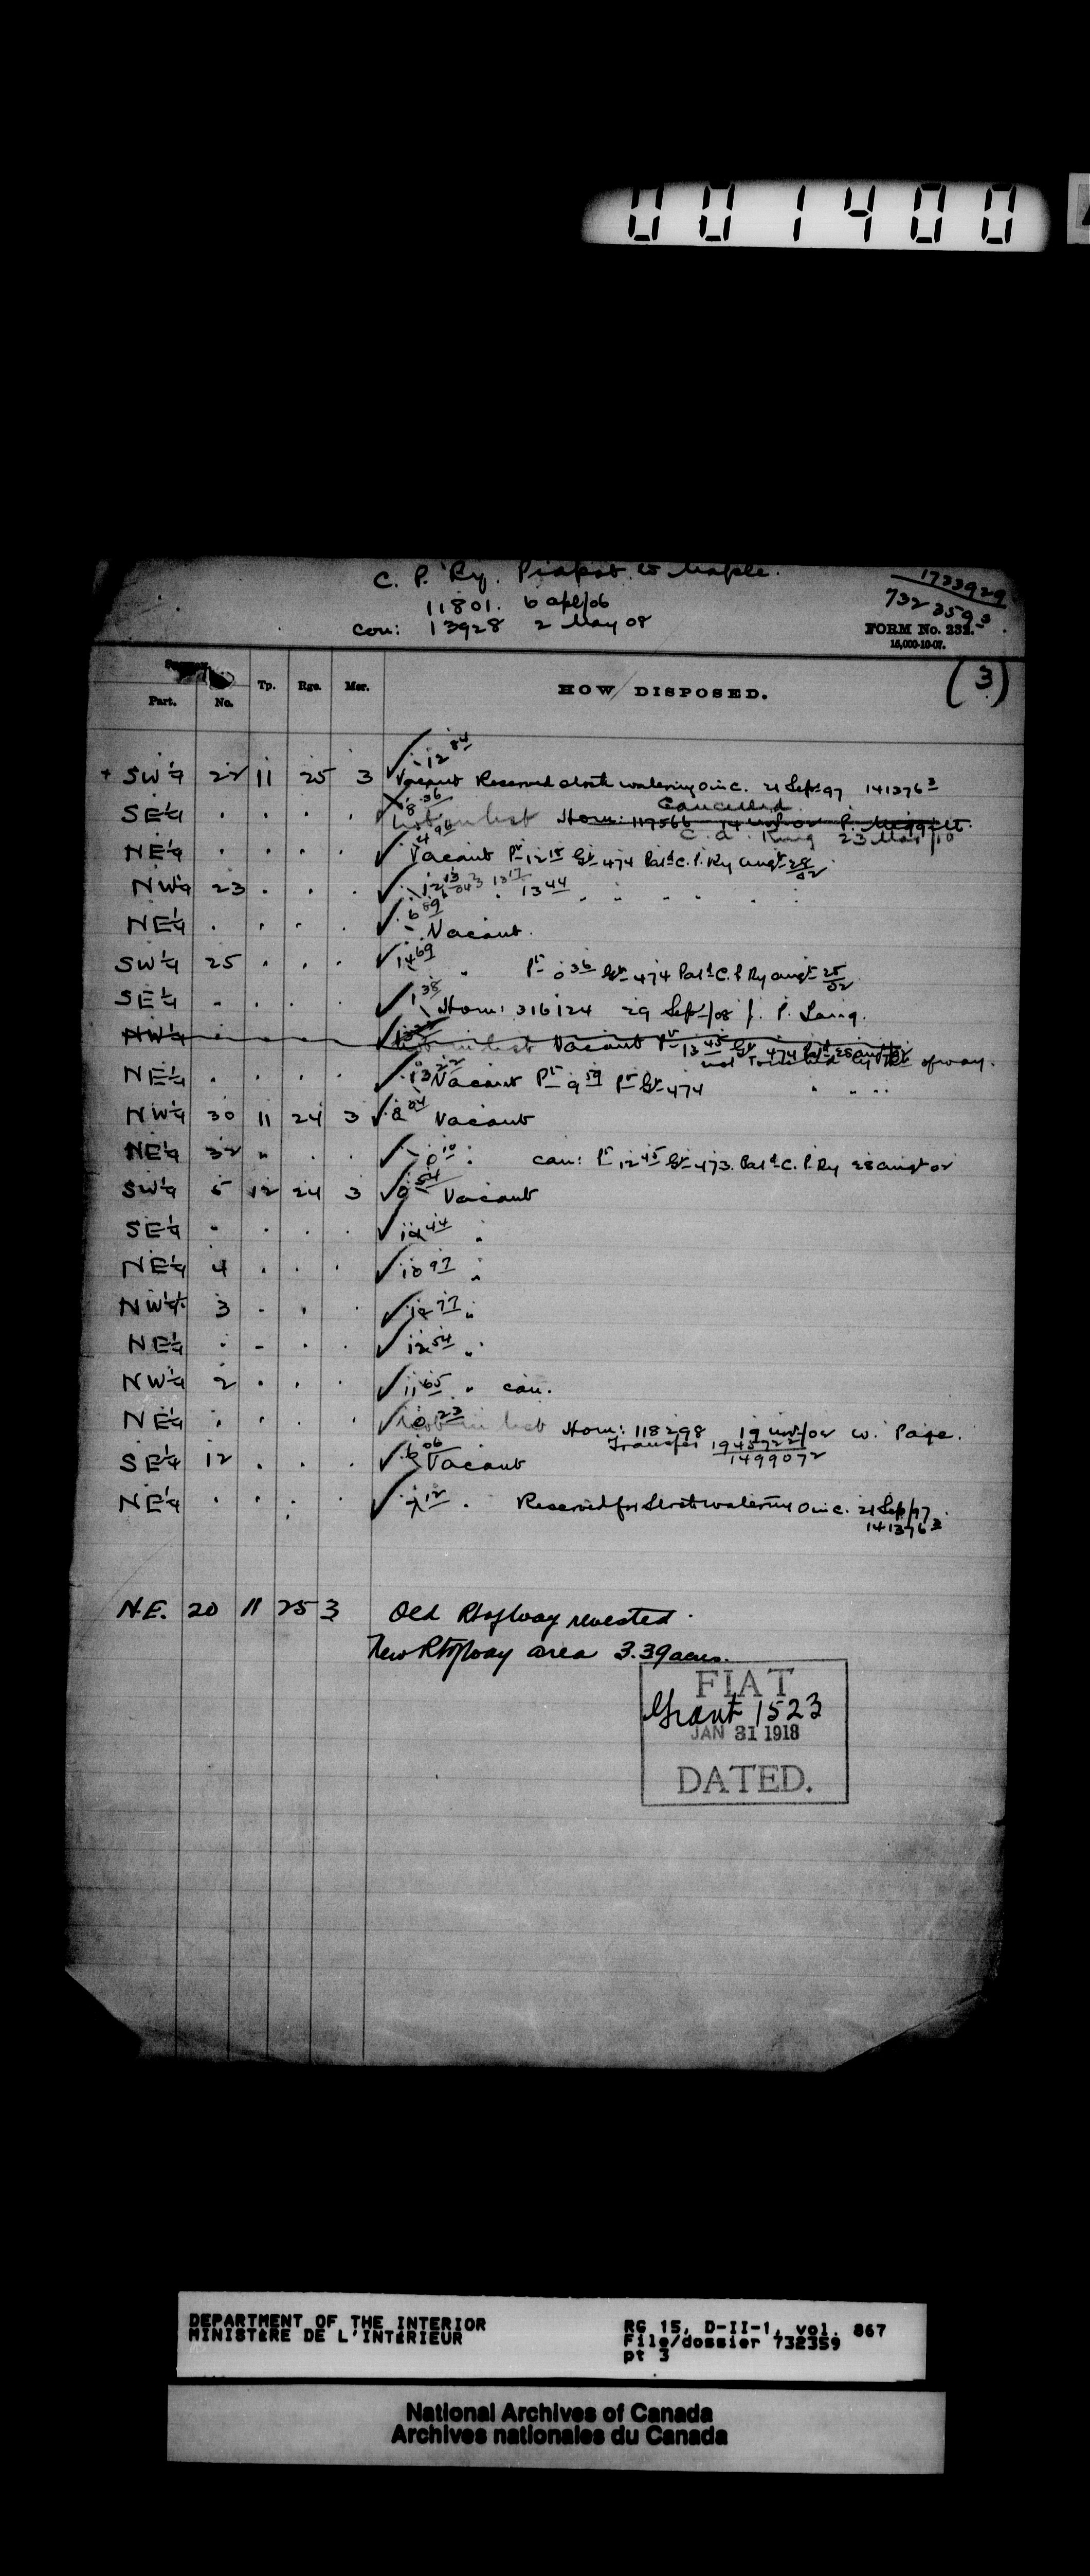 001400
C. P. Ry. Piapot to Maple.
11801. 6 apl/06
con: 13928 2 May 08
1733929
732359 3
FORM No. 232.
15,000-10-07.
(3)
Part. No. Tp. Rge. Mer. HOW DISPOSED.
12 84
+ SW¼ 22 11 25 3 Vacant Reserved stock watering O in C. 21 Sep 97 141376 3
8 36 Cancelled
SE¼ . . . . Hom: 117566 14
C. A. King 23 Mar/10
NE¼ . . . . 4 96 Vacant Pt 12 15 Gr 474 Pat'd C. P. Ry augt 28/02
NW¼ 23 . . . 13 44
NE¼ . . . . 6 89 Vacant.
SW¼ 25 . . . 14 69 " Pt 0 36 Gr 474 Pat'd C. P. Ry augt 28/02
SE¼ . . . . 1 38 Hom: 316124 29 Sep/08 J. P. Lang.
NW¼ Not in list Vacant Pt 13 45 Gr 474 of way.
NE¼ . . . . 13 22 Vacant Pt 9 59 Pt Gr 474 " " "
NW¼ 30 11 24 3 8 04 Vacant
NE¼ 32 " . . 0 10 " can: Pt 12 45 Gr 473. Pat'd C. P. Ry 28 augt 02
SW¼ 5 12 24 3 0 54 Vacant
SE¼ " . . . 12 44 "
NE¼ 4 . . . 10 97 "
NW¼ 3 . . . 12 77 "
NE¼ . . . . 12 54 "
NW¼ 2 . . . 11 65 " can.
NE¼ . . . . Not in list 0 23 Hom: 118298 19 nov/02 W. Page.
Transfer 1945722
1499072
SE¼ 12 . . . 6 06 Vacant
NE¼ . . . . 12 " Reserved for Stock watering O in C. 21 Sep/97.
141376 3
N.E. 20 11 25 3 Old Rt of Way revested.
New Rt of Way area 3.39 acres.
FIAT
Grant 1523
JAN 31 1918
DATED.
DEPARTMENT OF THE INTERIOR
MINISTÈRE DE L'INTÉRIEUR
RG 15, D-II-1, vol. 867
File/dossier 732359
pt 3
National Archives of Canada
Archives nationales du Canada